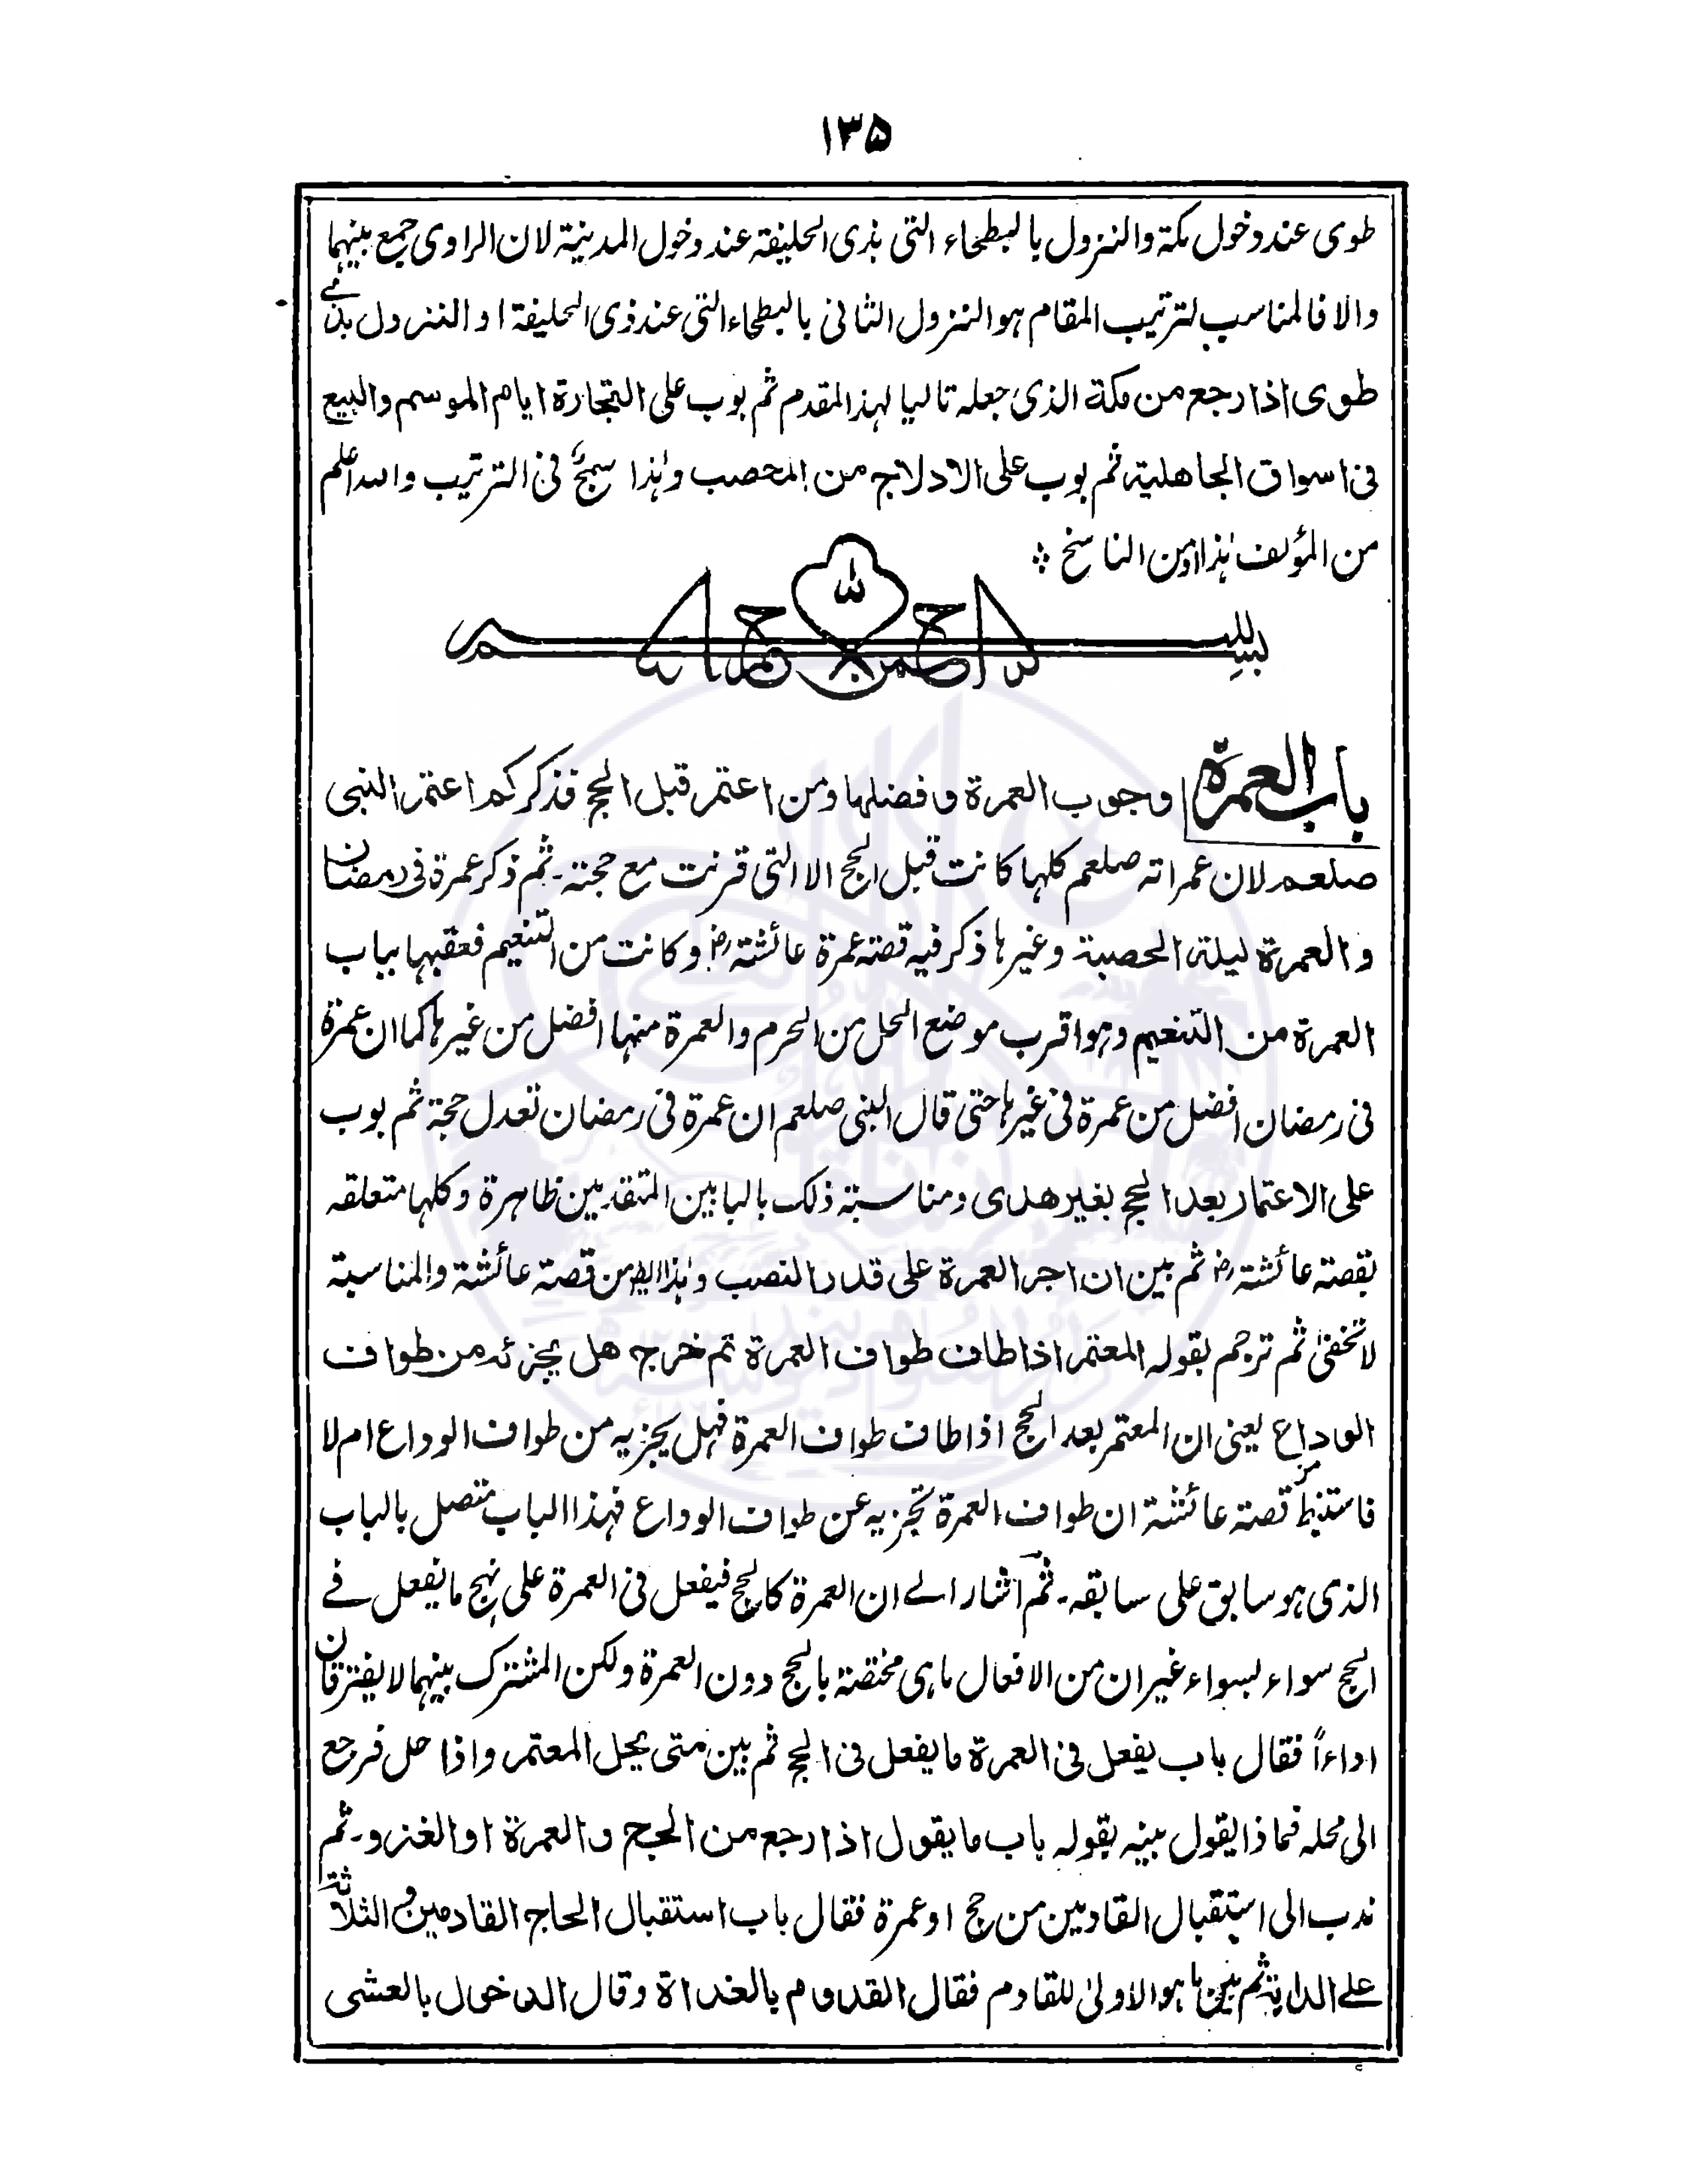 ١٣٥
طوى عند دخول مكة والنزول بالبطحاء التى بذى الحليفة عند دخول المدينة لان الراوى جمع بينهما
والا فالمناسب لترتيب المقام هو النزول الثانى بالبطحاء التى عند ذى الحليفة او النزول بذے
طوى اذا رجع من مكة الذى جعله تاليا لهذ المقدم ثم بوب على التجارة ايام الموسم والبيع
فى اسواق الجاهلية ثم بوب على الادلاج من المحصب وهٰذا سمج فى الترتيب والله اعلم
من المؤلف هٰذا اومن الناسخ ۞
بسم الله الرحمن الرحيم
باب العمرة وجوب العمرة وفضلها ومن اعتمر قبل الحج فذكر كم اعتمر النبى
صلعم لان عمراته صلعم كلها كانت قبل الحج الا التى قرنت مع حجته۔ ثم ذكر عمرة فى رمضان
والعمرة ليلة الحصبة وغيرها ذكر فيه قصة عمرة عائشة رض وكانت من التنعيم فعقبها بباب
العمرة من التنعيم وهو اقرب موضع الحل من الحرم والعمرة منها افضل من غيرها كما ان عمرة
فى رمضان افضل من عمرة فى غيرها حتى قال النبى صلعم ان عمرة فى رمضان تعدل حجة ثم بوب
على الاعتمار بعد الحج بغير هدى ومناسبة ذلك بالبابين المتقدمين ظاهرة وكلها متعلقه
بقصة عائشة رض ثم بين ان اجر العمرة على قدر النصب وهٰذا ايضا من قصة عائشة والمناسبة
لا تخفىٰ ثم ترجم بقوله المعتمر اذا طاف طواف العمرة ثم خرج هل يجزئه من طواف
الوداع يعنى ان المعتمر بعد الحج اذا طاف طواف العمرة فهل يجزيه من طواف الوداع ام لا
فاستنبط من قصة عائشة ان طواف العمرة تجزيه عن طواف الوداع فهذا الباب متصل بالباب
الذى هو سابق على سابقه۔ ثم اشار الے ان العمرة كالحج فيفعل فى العمرة على نهج ما يفعل فے
الحج سواء بسواء غير ان من الافعال ما هى مختصة بالحج دون العمرة ولكن المشترك بينهما لا يفترقان
اداءاً فقال باب يفعل فى العمرة ما يفعل فى الحج ثم بين متى يحل المعتمر واذا حل فرجع
الى محله فماذا يقول بينه بقوله باب ما يقول اذا رجع من الحج والعمرة او الغزو۔ ثم
ندب الى استقبال القادمين من حج او عمرة فقال باب استقبال الحاج القادمين والثلاثة
علے الدابة ثم بين ما هو الاولىٰ للقادم فقال القدوم بالغداة وقال الدخول بالعشى